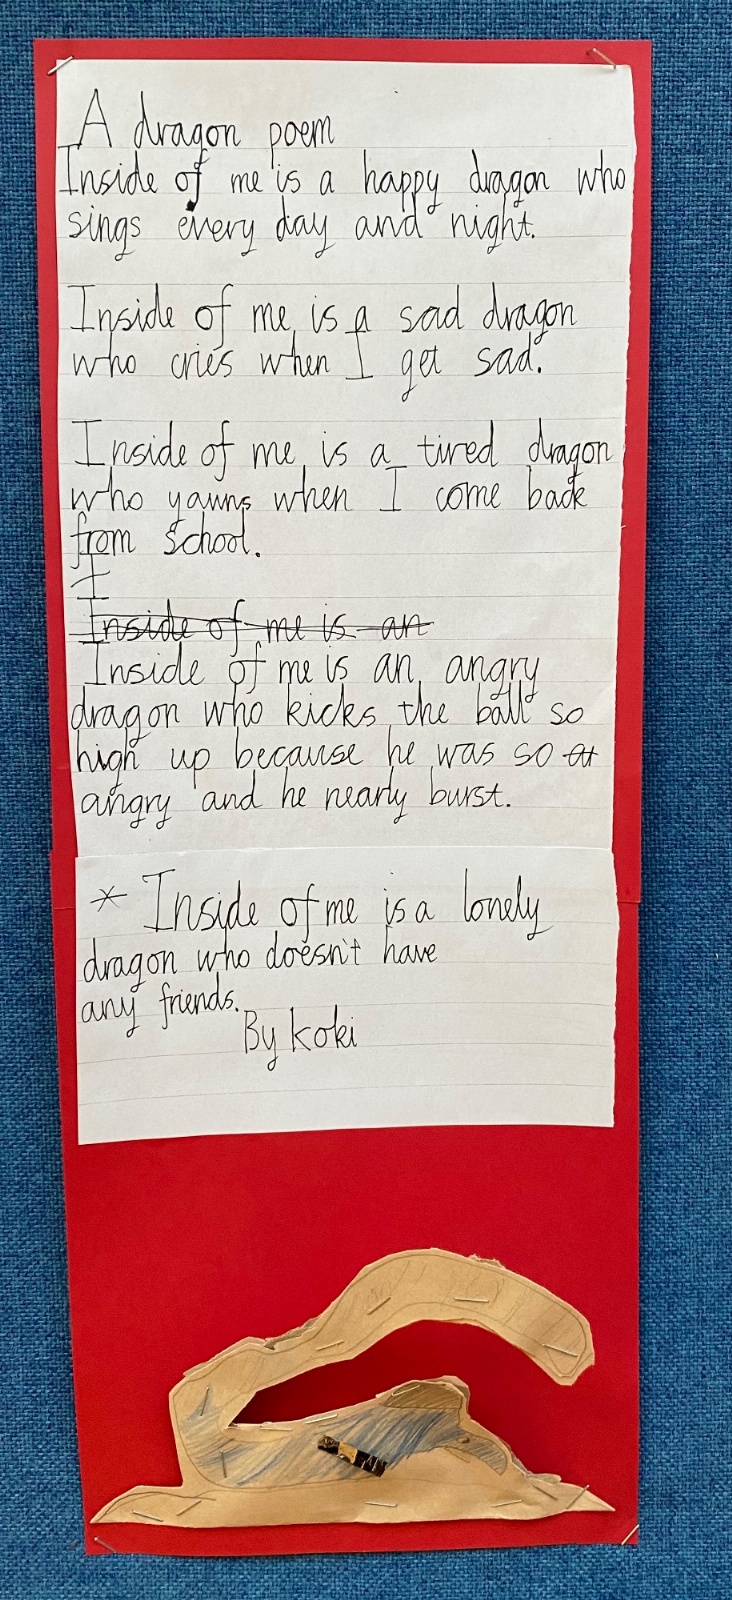 A dragon poem
Inside of me is a happy dragon who
sings every day and night.
Inside of me is a sad dragon
who cries when I get sad.
Inside of me is a tired dragon
who yauns when I come back
from school.
I
Inside of me is an
Inside of me is an angry
dragon who kicks the ball so
high up because he was so at
angry and he nearly burst.
* Inside of me is a lonely
dragon who doesn't have
any friends.
By koki